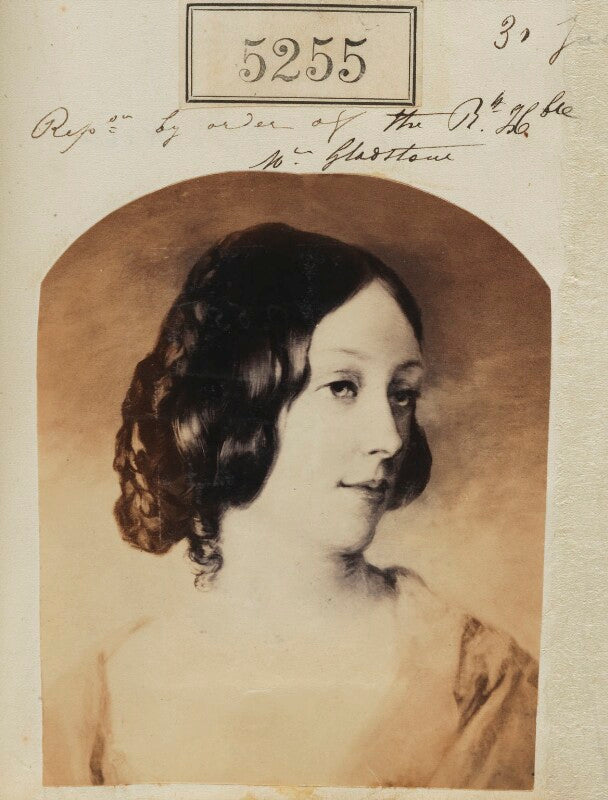 5255
31
Repon by order of the Rt. Hble
Mr Gladstone